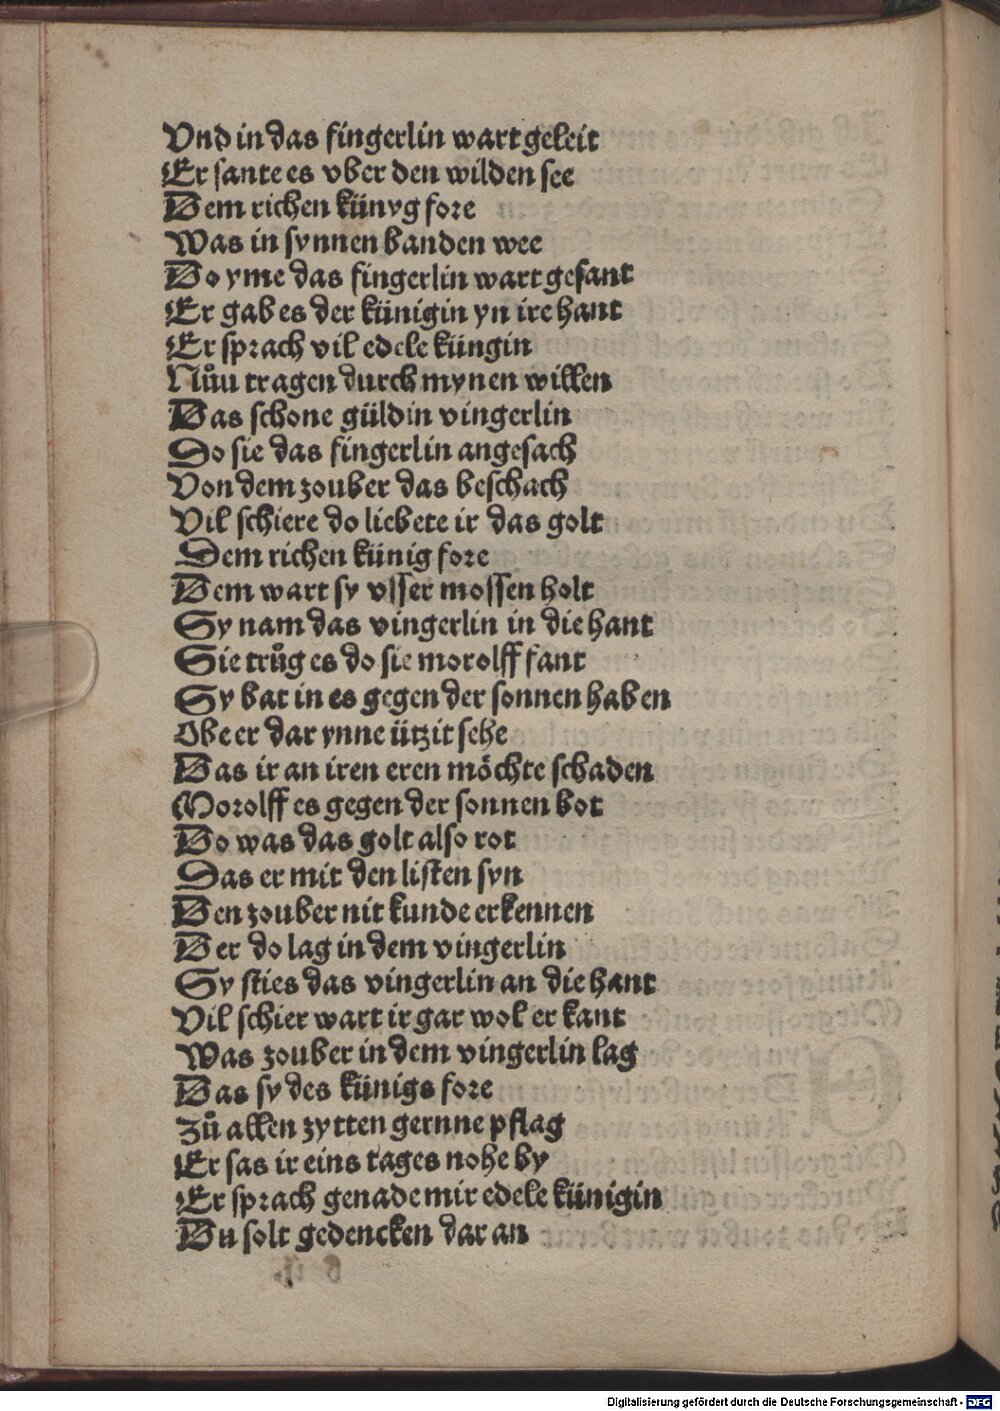 Vnd in das fingerlin wart geleit
Er sante es vber den wilden see
Dem richen künyg fore
Was in synnen banden wee
Do yme das fingerlin wart gesant
Er gab es der künigin yn ire hant
Er sprach vil edele küngin
Nůu tragen durch mynen willen
Das schone güldin vingerlin
Do sie das fingerlin angesach
Von dem zouber das beschach
Vil schiere do liebete ir das golt
Dem richen künig fore
Dem wart sy vsser mossen holt
Sy nam das vingerlin in die hant
Sie trůg es do sie morolff fant
Sy bat in es gegen der sonnen haben
Obe er dar ynne ützit sehe
Das ir an iren eren möchte schaden
Morolff es gegen der sonnen bot
Do was das golt also rot
Das er mit den listen syn
Den zouber nit kunde erkennen
Der do lag in dem vingerlin
Sy sties das vingerlin an die hant
Vil schier wart ir gar wol er kant
Was zouber in dem vingerlin lag
Das sy des künigs fore
Zů allen zytten gernne pflag
Er sas ir eins tages nohe by
Er sprach genade mir edele künigin
Du solt gedencken dar an
Digitalisierung gefördert durch die Deutsche Forschungsgemeinschaft - DFG